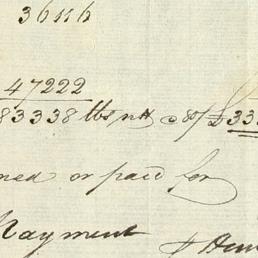 36116
47222
83338 lbs nt @ 80/ £ 33
ned or paid for
Nayment